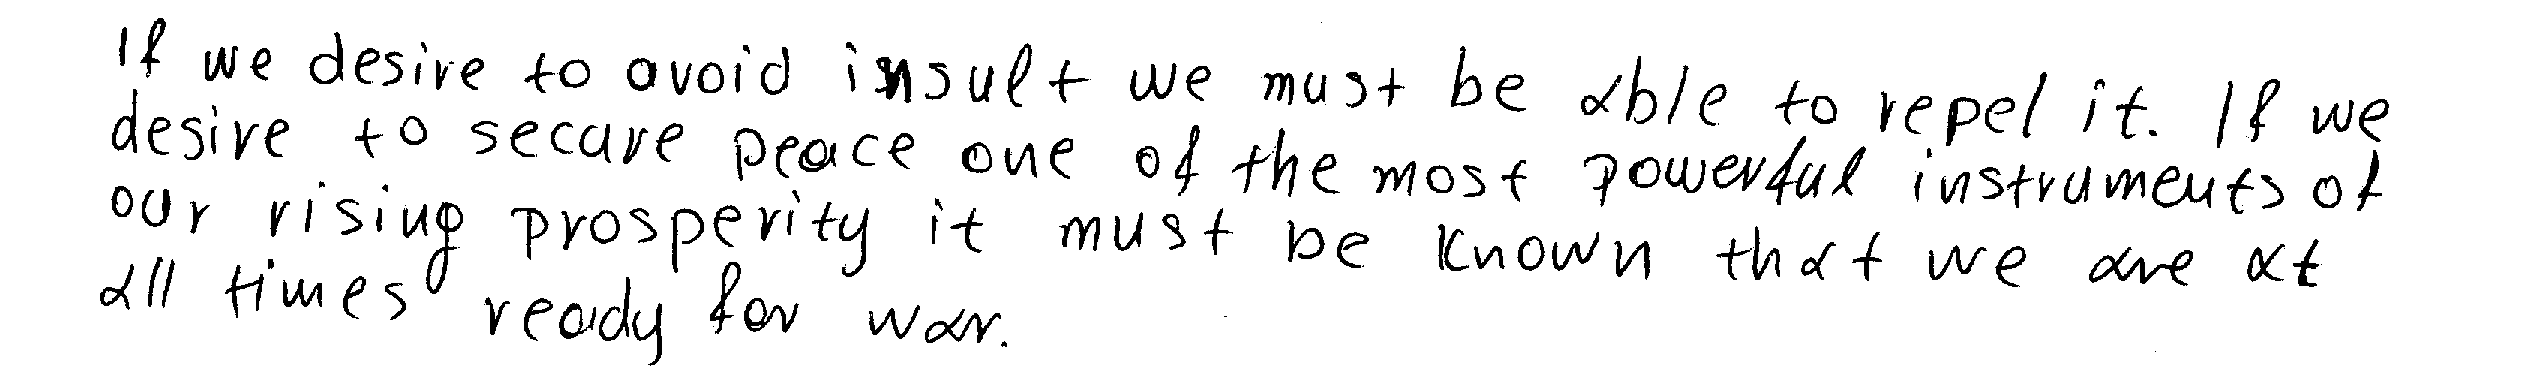 If we desire to avoid insult we must be able to repel it. If we
desire to secure peace one of the most powerful instruments of
our rising prosperity it must be known that we are at
all times ready for war.